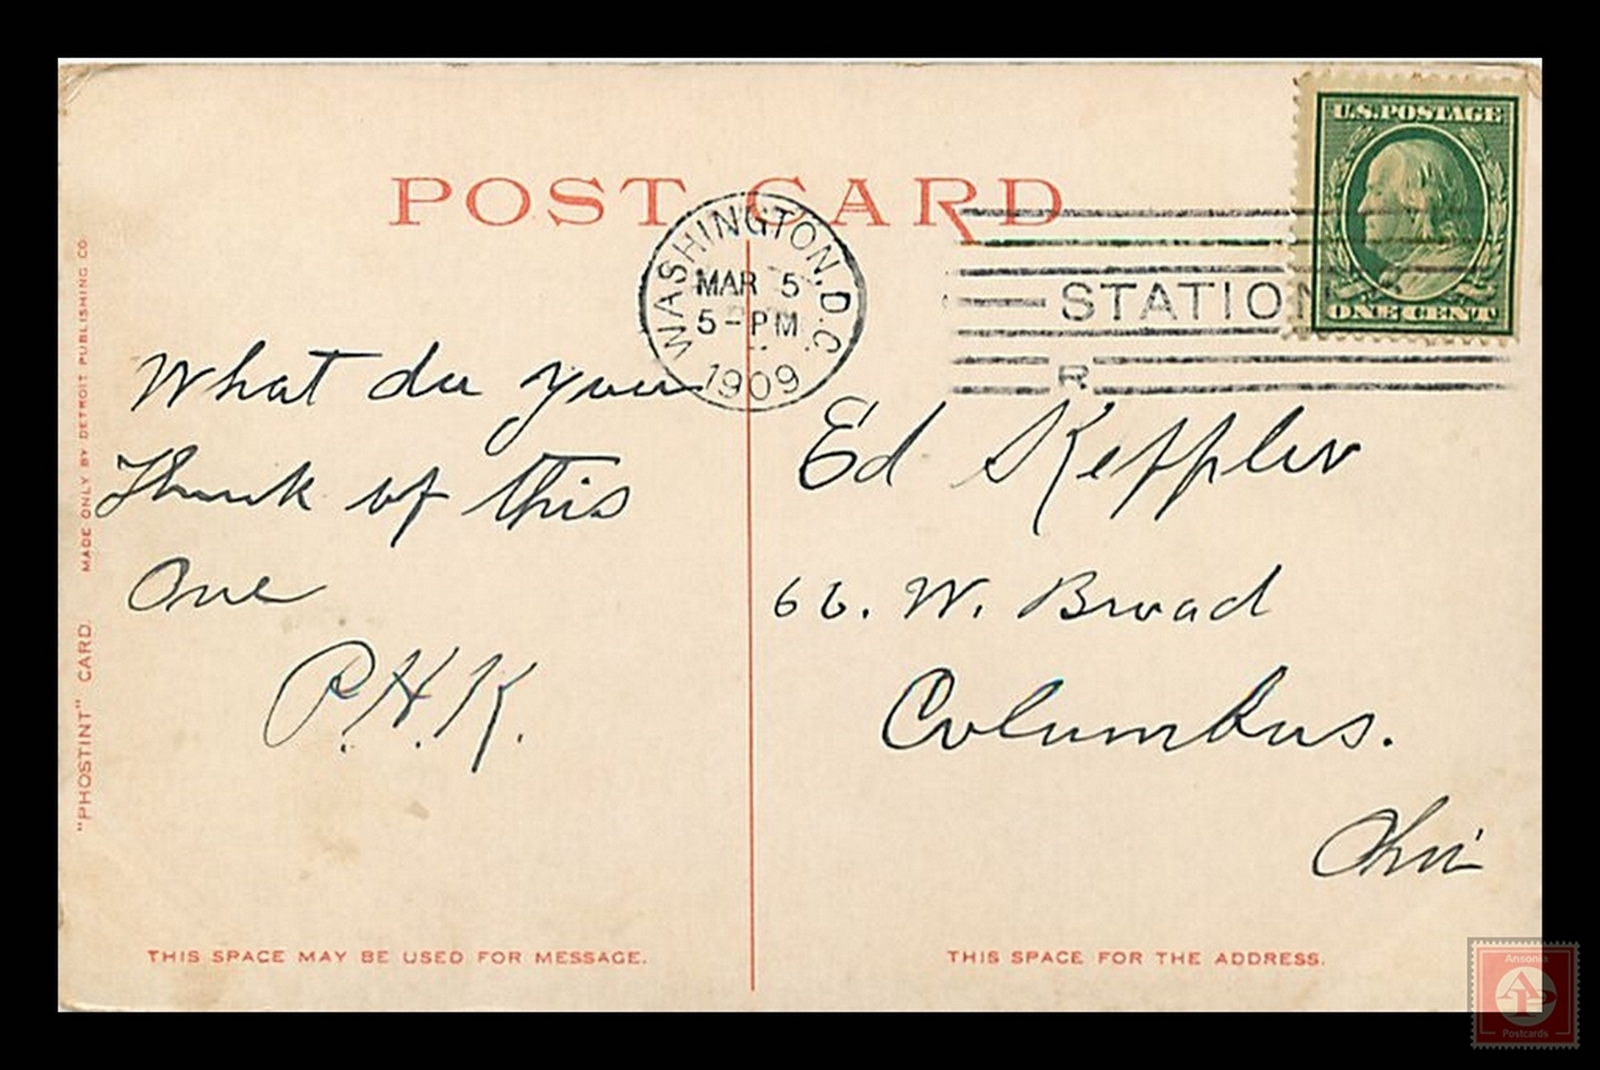 POST CARD
U.S. POSTAGE
ONE CENT
WASHINGTON, D.C.
MAR 5
5-PM
1909
STATION
R
What do you
Think of this
One
P.H.K.
Ed Keffler
66. W. Broad
Columbus.
Ohio
"PHOSTINT" CARD. MADE ONLY BY DETROIT PUBLISHING CO.
THIS SPACE MAY BE USED FOR MESSAGE.
THIS SPACE FOR THE ADDRESS.
Ansonia
AP
Postcards